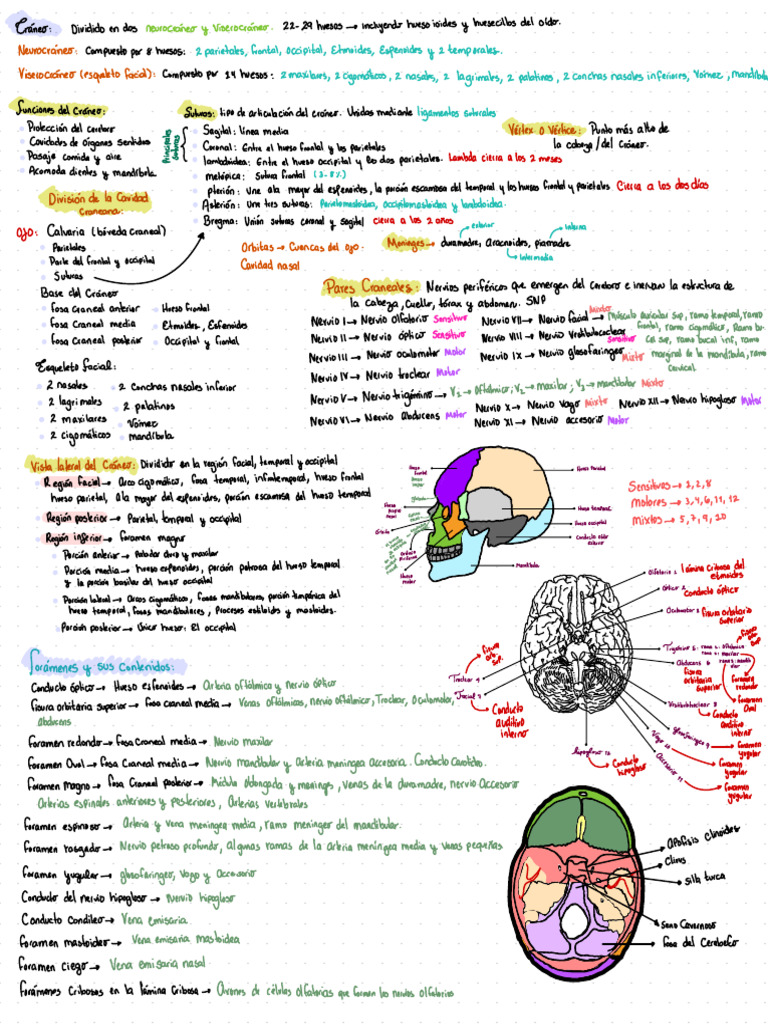 Cráneo: Dividido en dos neurocráneo y Viserocráneo. 22-29 huesos → incluyendo hueso ioides y huesecillos del oído.
Neurocráneo: Compuesto por 8 huesos: 2 parietales, frontal, occipital, Etmoides, Esfenoides y 2 temporales.
Viserocráneo (esqueleto facial): Compuesto por 14 huesos: 2 maxilares, 2 cigomáticos, 2 nasales, 2 lagrimales, 2 palatinos, 2 conchas nasales inferiores, Vómer, mandíbula
Funciones del Cráneo:
Protección del cerebro
Cavidades de órganos sentidos
Pasaje comida y aire
Acomoda dientes y mandíbula
Suturas: tipo de articulación del cráneo. Unidas mediante ligamentos suturales
Principales Suturas
Sagital: línea media
Coronal: Entre el hueso frontal y los parietales
lambdoidea: Entre el hueso occipital y los dos parietales. Lambda cierra a los 2 meses
metópica: Sutura frontal (3-8%)
pterión: Une ala mayor del esfenoides, la porción escamosa del temporal y los huesos frontal y parietales Cierra a los dos días
Asterión: Une tres suturas: Parietomastoidea, occipitomastoidea y lambdoidea.
Bregma: Unión suturas coronal y sagital cierra a los 2 años
Vértex o Vértice: Punto más alto de
la cabeza / del Cráneo.
División de la Cavidad
Craneana:
Ojo: Calvaria (bóveda craneal)
Parietales
Parte del frontal y occipital
Suturas
Base del Cráneo
fosa craneal anterior • Hueso frontal
fosa Craneal media • Etmoides, Esfenoides
fosa craneal posterior • Occipital y frontal
Orbitas → Cuencas del ojo.
Cavidad nasal
exterior
interna
Meninges → duramadre, Aracnoides, piamadre
Intermedia
Pares Craneales: Nervios periféricos que emergen del Cerebro e inervan la estructura de
la cabeza, Cuello, tórax y abdomen. SNP
Nervio I → Nervio Olfatorio Sensitivo
Nervio II → Nervio óptico Sensitivo
Nervio III → Nervio oculomotor Motor
Nervio IV → Nervio troclear Motor
Nervio V → Nervio trigémino → V1 → Oftálmico; V2 → maxilar; V3 → mandibular Mixto
Nervio VI → Nervio Abducens Motor
Nervio VII → Nervio facial Mixto → músculo auricular sup, ramo temporal, ramo
frontal, ramo cigomático, Ramo bu-
cal sup, ramo bucal inf, ramo
marginal de la mandíbula, ramo
cervical.
Nervio VIII → Nervio Vestibulococlear Sensitivo
Nervio IX → Nervio glosofaríngeo Mixto
Nervio X → Nervio Vago Mixto
Nervio XI → Nervio accesorio Motor
Nervio XII → Nervio hipogloso Motor
Esqueleto facial:
2 nasales • 2 Conchas nasales inferior
2 lagrimales • 2 palatinos
2 maxilares • Vómer
2 cigomáticos • mandíbula
Vista lateral del Cráneo: Dividido en la región facial, temporal y occipital
Región facial → Arco cigomático, fosa temporal, infratemporal, hueso frontal
hueso parietal, ala mayor del esfenoides, porción escamosa del hueso temporal
Región posterior → Parietal, temporal y occipital
Región inferior → foramen magno
Porción anterior → Paladar duro y maxilar
Porción media → hueso esfenoides, porción petrosa del hueso temporal
y la porción basilar del hueso occipital
Porción lateral → Arcos cigomáticos, fosas mandibulares, porción timpánica del
hueso temporal, fosas mandibulares, Procesos estiloides y mastoides.
Porción posterior → Único hueso: El occipital
Hueso frontal
Hueso Parietal
Hueso temporal
Hueso occipital
Conducto auditivo externo
Mandíbula
Sensitivos → 1, 2, 8
motores → 3, 4, 6, 11, 12
mixtos → 5, 7, 9, 10
Olfatorio 1 → lámina cribosa del
etmoides
Optico 2 → conducto óptico
Oculomotor 3 → fisura orbitaria
superior
Trigémino 5
Abducens 6
fisura
orbitaria
Superior
foramen
redondo
foramen
Oval
Vestibulococlear 8
Conducto
auditivo
interno
Glosofaríngeo 9 → foramen
yugular
Vago 10 → foramen
yugular
Accesorio 11 → foramen
yugular
Troclear 4
fisura
orb.
sup.
Facial 7
Conducto
auditivo
interno
hipogloso 12
Conducto
hipogloso
Forámenes y sus Contenidos:
Conducto óptico → Hueso esfenoides → Arteria oftálmica y nervio óptico
fisura orbitaria superior → fosa craneal media → Venas oftálmicas, nervio oftálmico, Troclear, Oculomotor,
abducens
foramen redondo → fosa Craneal media → Nervio maxilar
foramen Oval → fosa Craneal media → Nervio mandibular y arteria meningea accesoria. Conducto Carotideo.
foramen magno → fosa Craneal posterior → Médula oblongada y menings, venas de la duramadre, nervio Accesorio
Arterias espinales anteriores y posteriores, Arterias vertebrales
foramen espinoso → Arteria y vena meningea media, ramo meningeo del mandibular.
foramen rasgado → Nervio petroso profundo, algunas ramas de la arteria meningea media y venas pequeñas
foramen yugular → glosofaríngeo, Vago y accesorio
Conducto del nervio hipogloso → Nervio hipogloso
Conducto Condileo → Vena emisaria.
foramen mastoideo → Vena emisaria mastoidea
foramen ciego → Vena emisaria nasal
forámenes Cribosos en la lámina Cribosa → Axones de células olfatorias que forman los nervios olfatorios
Apófisis clinoides
Clinos
Silla turca
Seno Cavernoso
fosa del Cerebelo